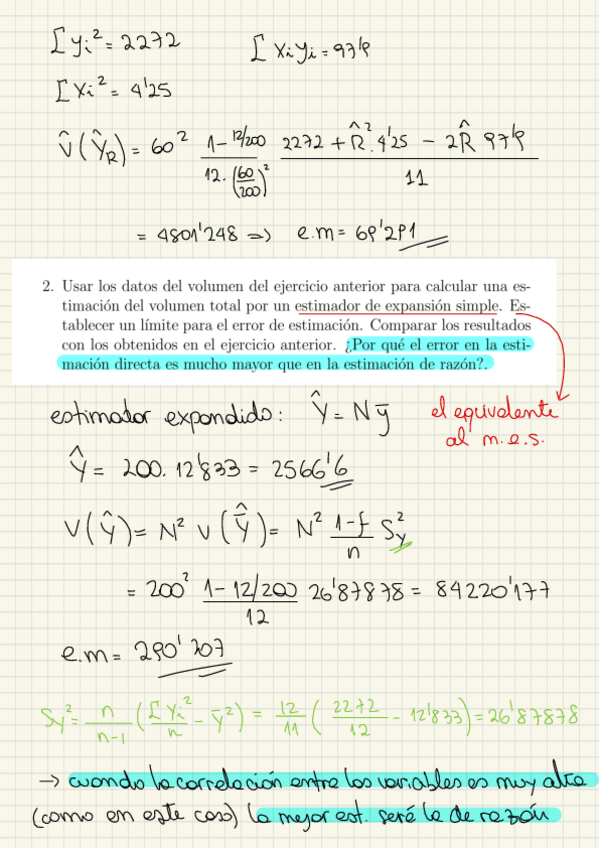 Σ yi² = 2272    Σ xi yi = 97'9
Σ xi² = 4'25
V̂(ŶR) = 60² (1 - 12/200) / (12·(60/200)²) · (2272 + R̂²·4'25 - 2R̂ 97'9) / 11
= 4801'248 => e.m = 69'291
2. Usar los datos del volumen del ejercicio anterior para calcular una es-
timación del volumen total por un estimador de expansión simple. Es-
tablecer un límite para el error de estimación. Comparar los resultados
con los obtenidos en el ejercicio anterior. ¿Por qué el error en la esti-
mación directa es mucho mayor que en la estimación de razón?.
estimador expandido: Ŷ = N ȳ
el equivalente
al m.e.s.
Ŷ = 200. 12'833 = 2566'6
V(Ŷ) = N² V(Ȳ̂) = N² (1-f)/n Sy²
= 200² (1 - 12/200)/12 26'87878 = 84220'177
e.m = 290'207
Sy² = n/(n-1) (Σ Yi²/n - ȳ²) = 12/11 (2272/12 - 12'833) = 26'87878
→ cuando la correlación entre las variables es muy alta
(como en este caso) la mejor est. será la de razón